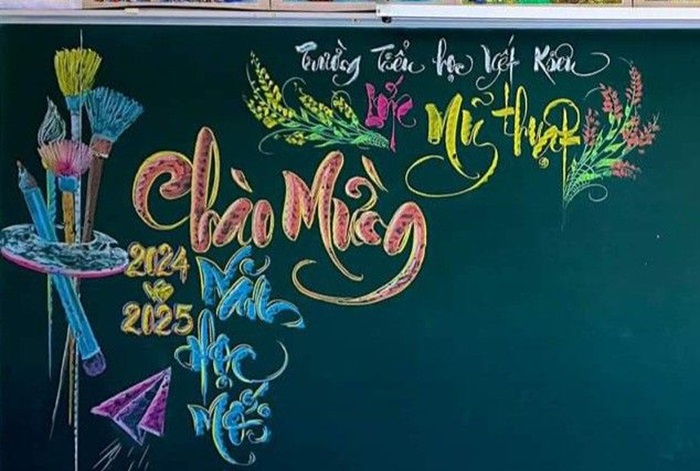 Trường Tiểu học Yết Kiêu
Lớp Mỹ thuật
Chào Mừng
2024
2025
Năm
Học
Mới